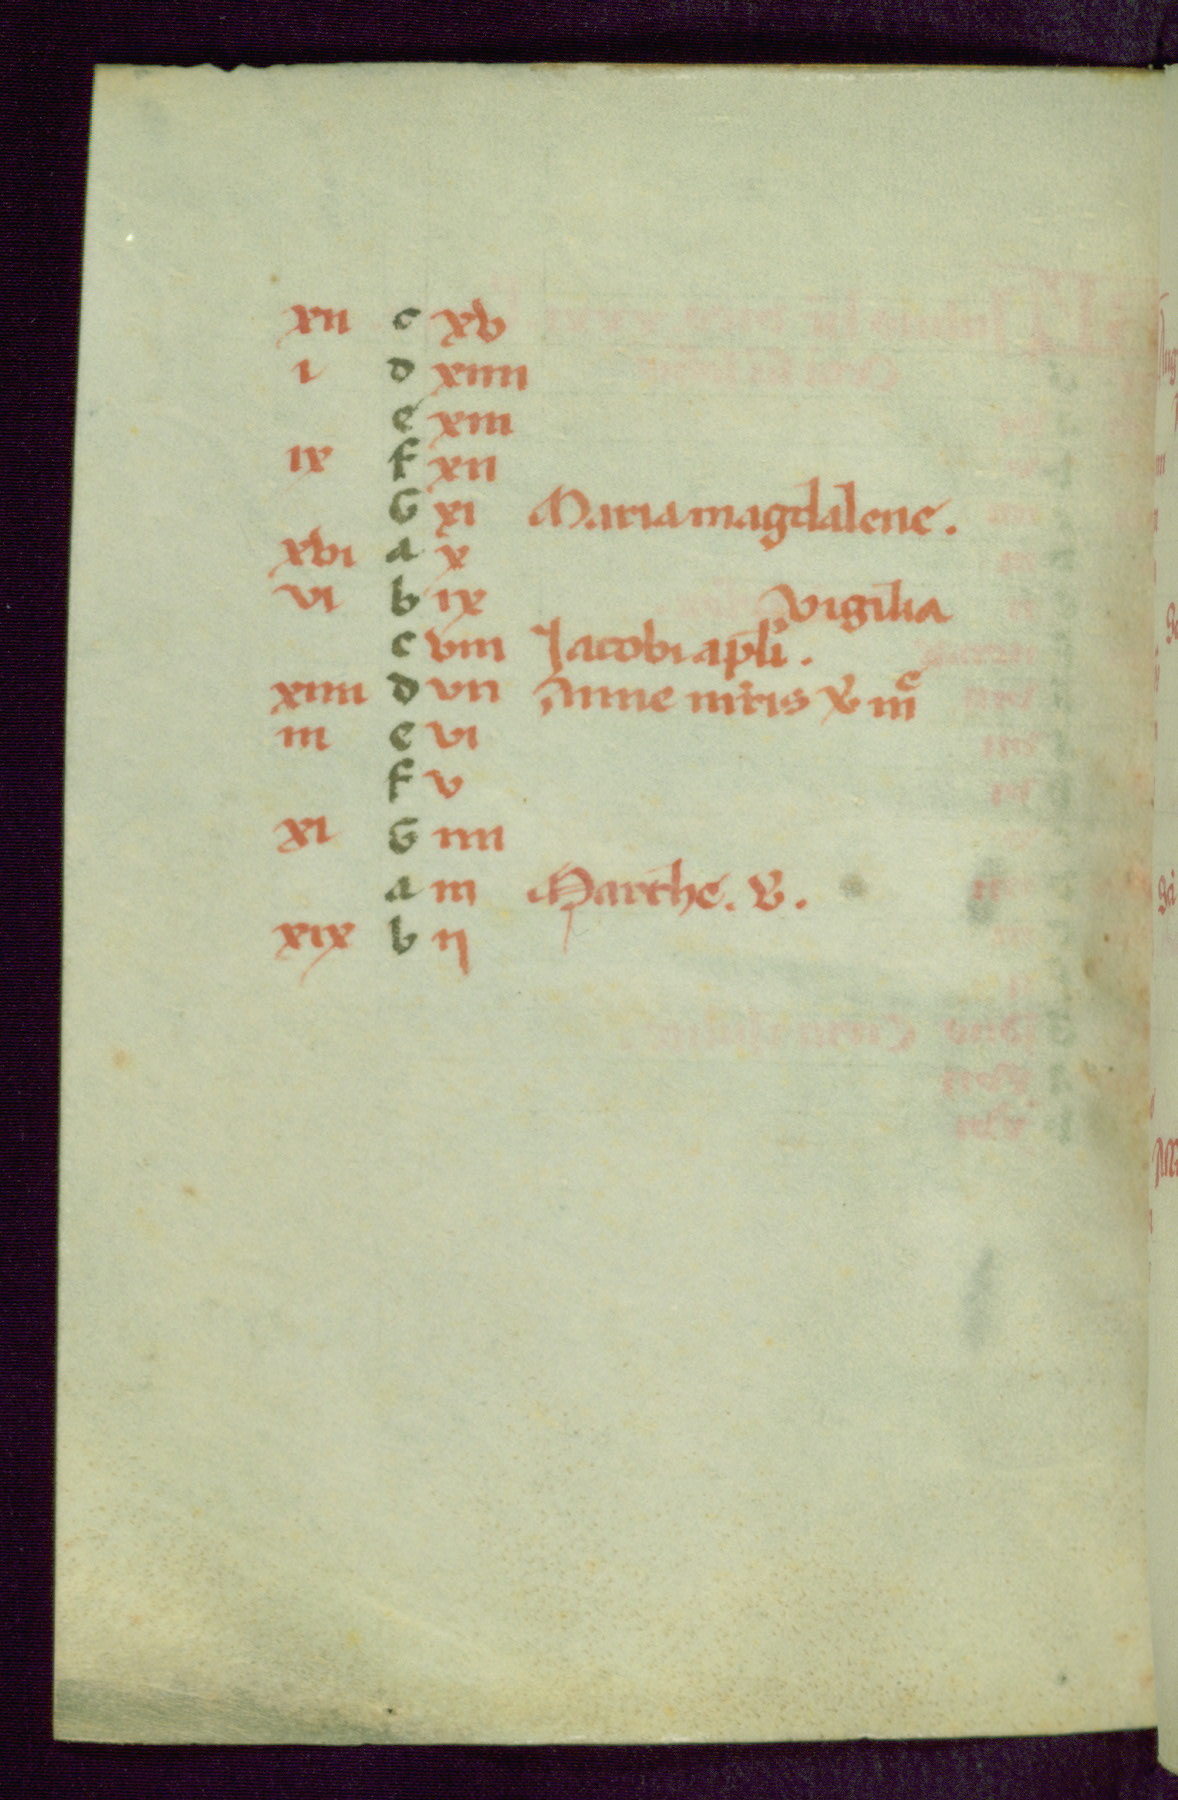 xii c xv
i d xiiii
e xiii
ix f xii
G xi Maria magdalene.
xvi a x
vi b ix vigilia
c viii Jacobi apli.
xiiii d vii Anne mris
iii e vi
f v
xi G iiii
a iii Marthe. v.
xix b ii